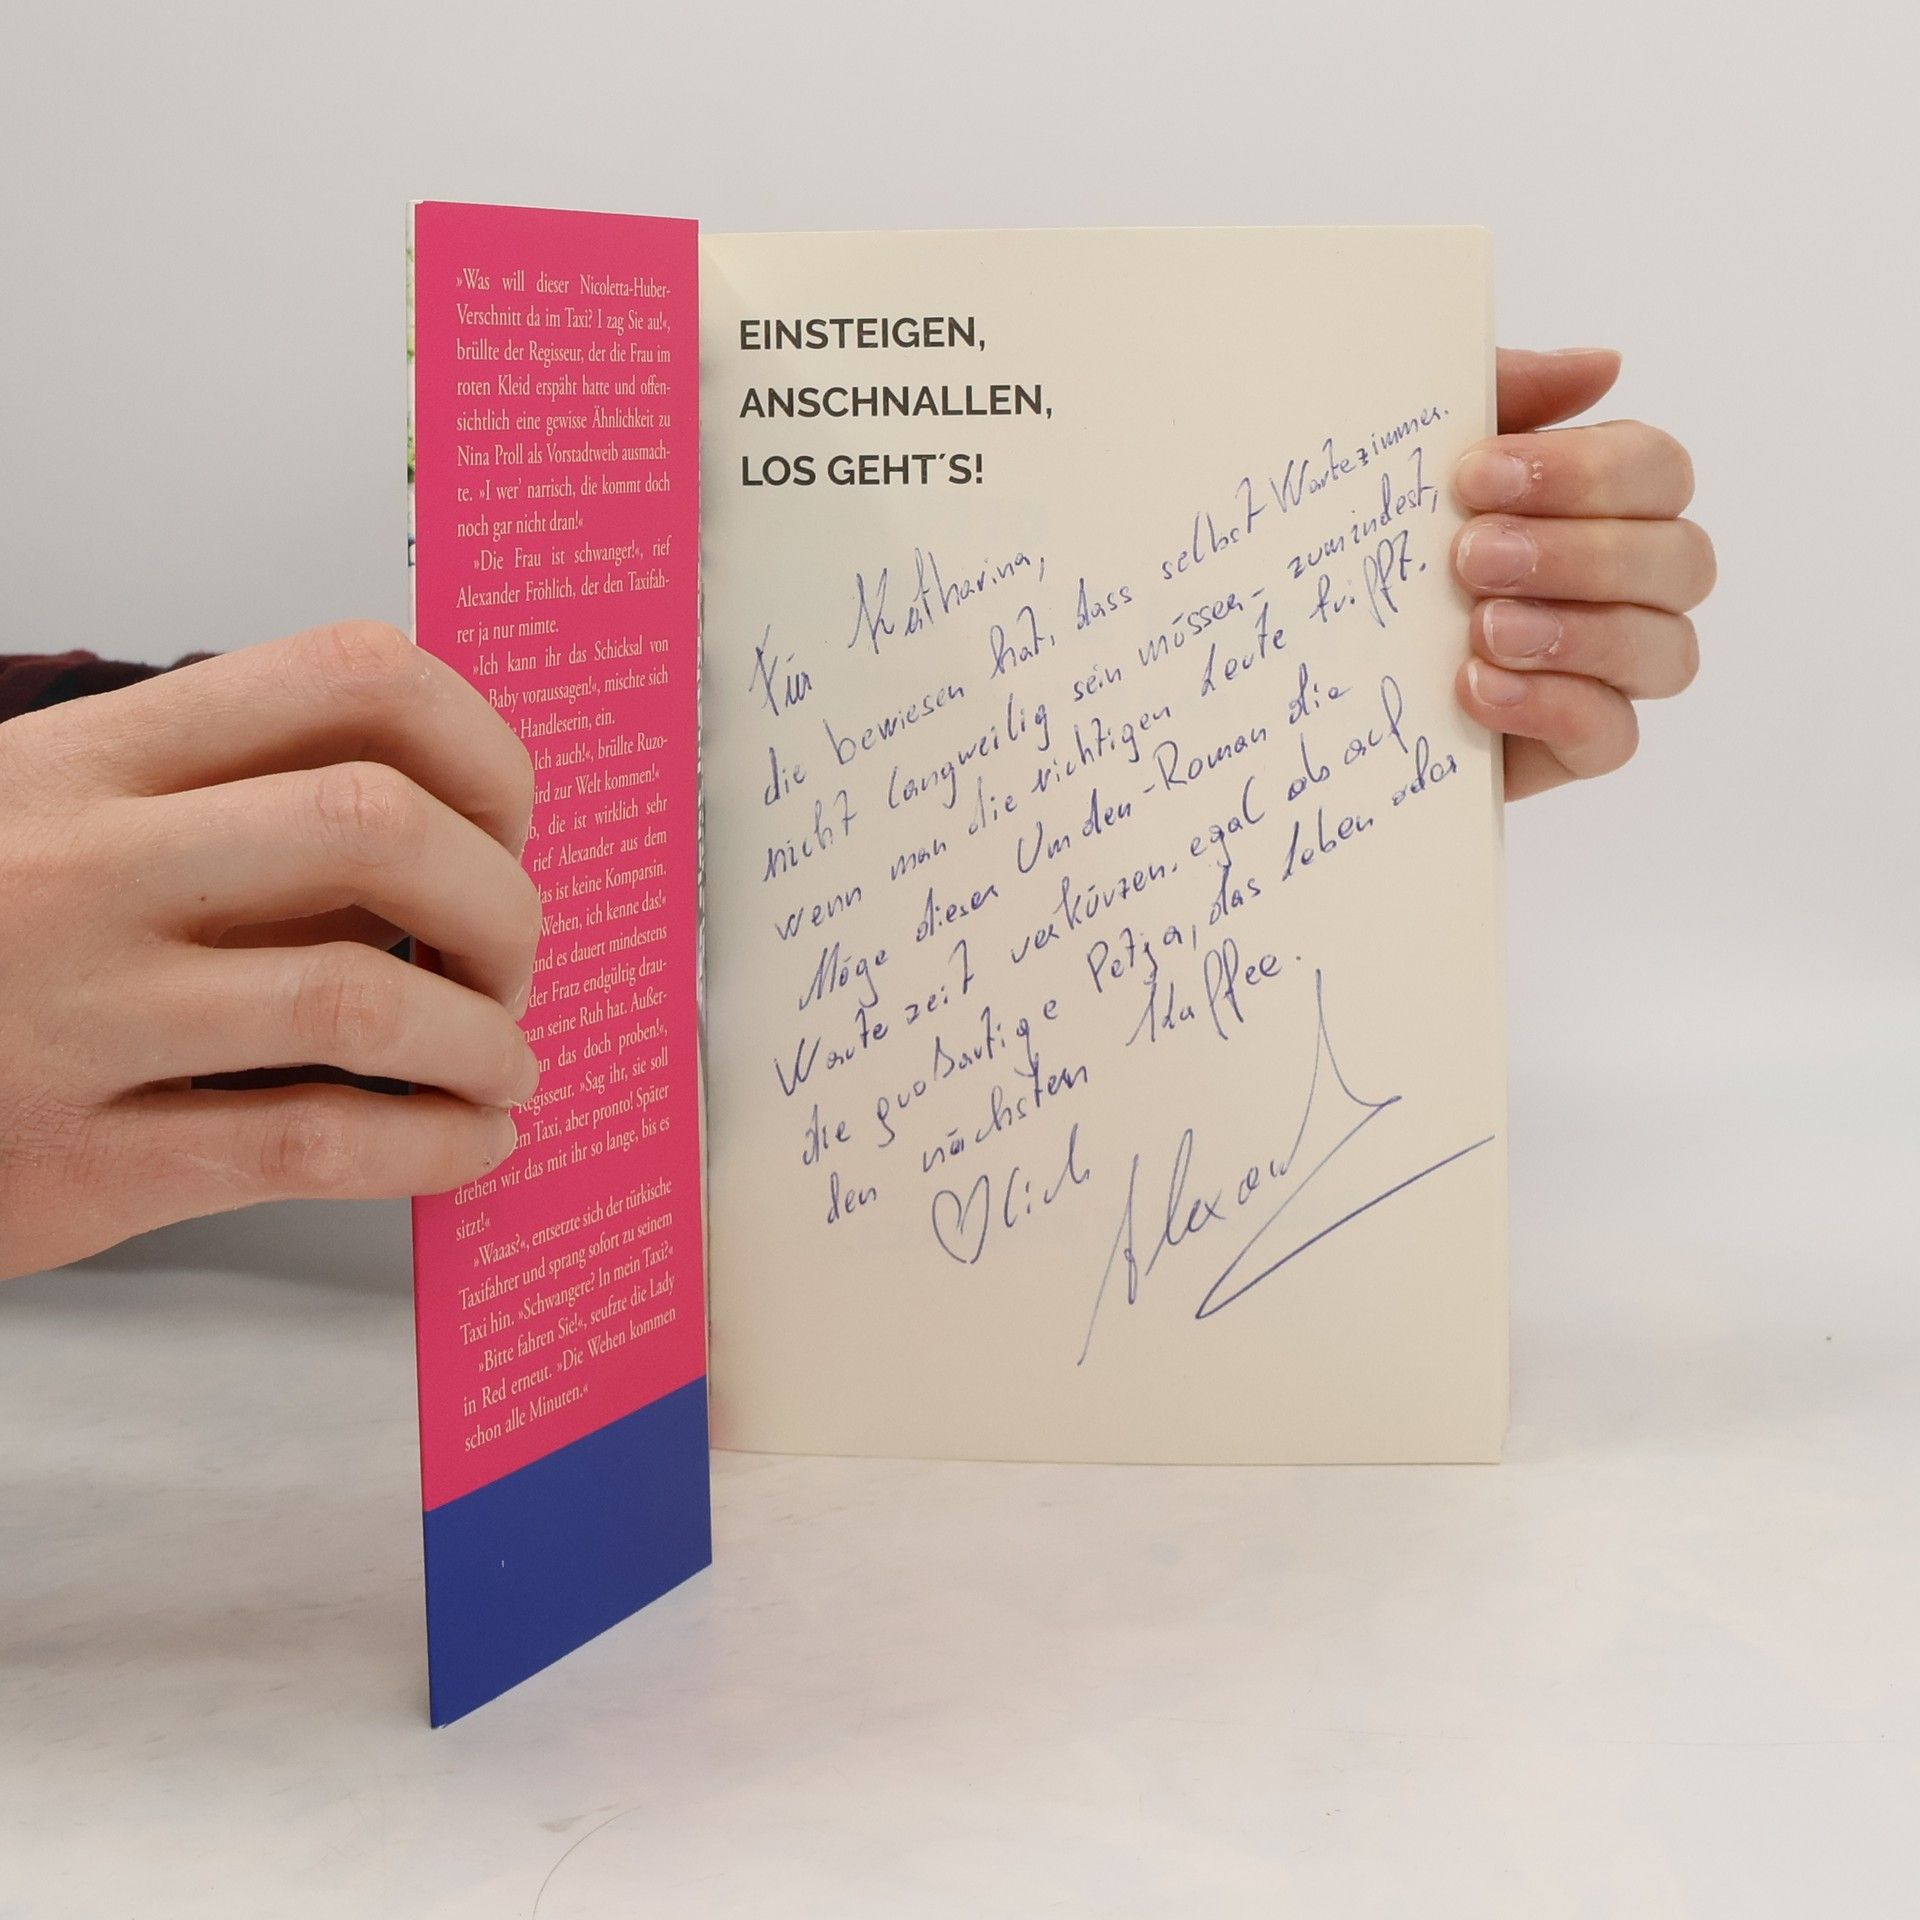 »Was will dieser Nicoletta-Huber-
Verschnitt da im Taxi? I zag Sie au!«,
brüllte der Regisseur, der die Frau im
roten Kleid erspäht hatte und offen-
sichtlich eine gewisse Ähnlichkeit zu
Nina Proll als Vorstadtweib ausmach-
te. »I wer' narrisch, die kommt doch
noch gar nicht dran!«
»Die Frau ist schwanger!«, rief
Alexander Fröhlich, der den Taxifah-
rer ja nur mimte.
»Ich kann ihr das Schicksal von
Baby voraussagen!«, mischte sich
Handleserin, ein.
Ich auch!«, brüllte Ruzo-
ird zur Welt kommen!«
b, die ist wirklich sehr
rief Alexander aus dem
as ist keine Komparsin.
Wehen, ich kenne das!«
und es dauert mindestens
der Fratz endgültig drau-
man seine Ruh hat. Außer-
nn das doch proben!«,
Regisseur. »Sag ihr, sie soll
em Taxi, aber pronto! Später
drehen wir das mit ihr so lange, bis es
sitzt!«
»Waaas?«, entsetzte sich der türkische
Taxifahrer und sprang sofort zu seinem
Taxi hin. »Schwangere? In mein Taxi?«
»Bitte fahren Sie!«, seufzte die Lady
in Red erneut. »Die Wehen kommen
schon alle Minuten.«
EINSTEIGEN,
ANSCHNALLEN,
LOS GEHT´S!
Für Katharina,
die bewiesen hat, dass selbst Wartezimmer
nicht langweilig sein müssen - zumindest,
wenn man die richtigen Leute trifft.
Möge dieser Um den-Roman die
Wartezeit verkürzen, egal ob auf
die großartige Petja, das Leben oder
den nächsten Kaffee.
♡lich Alexand